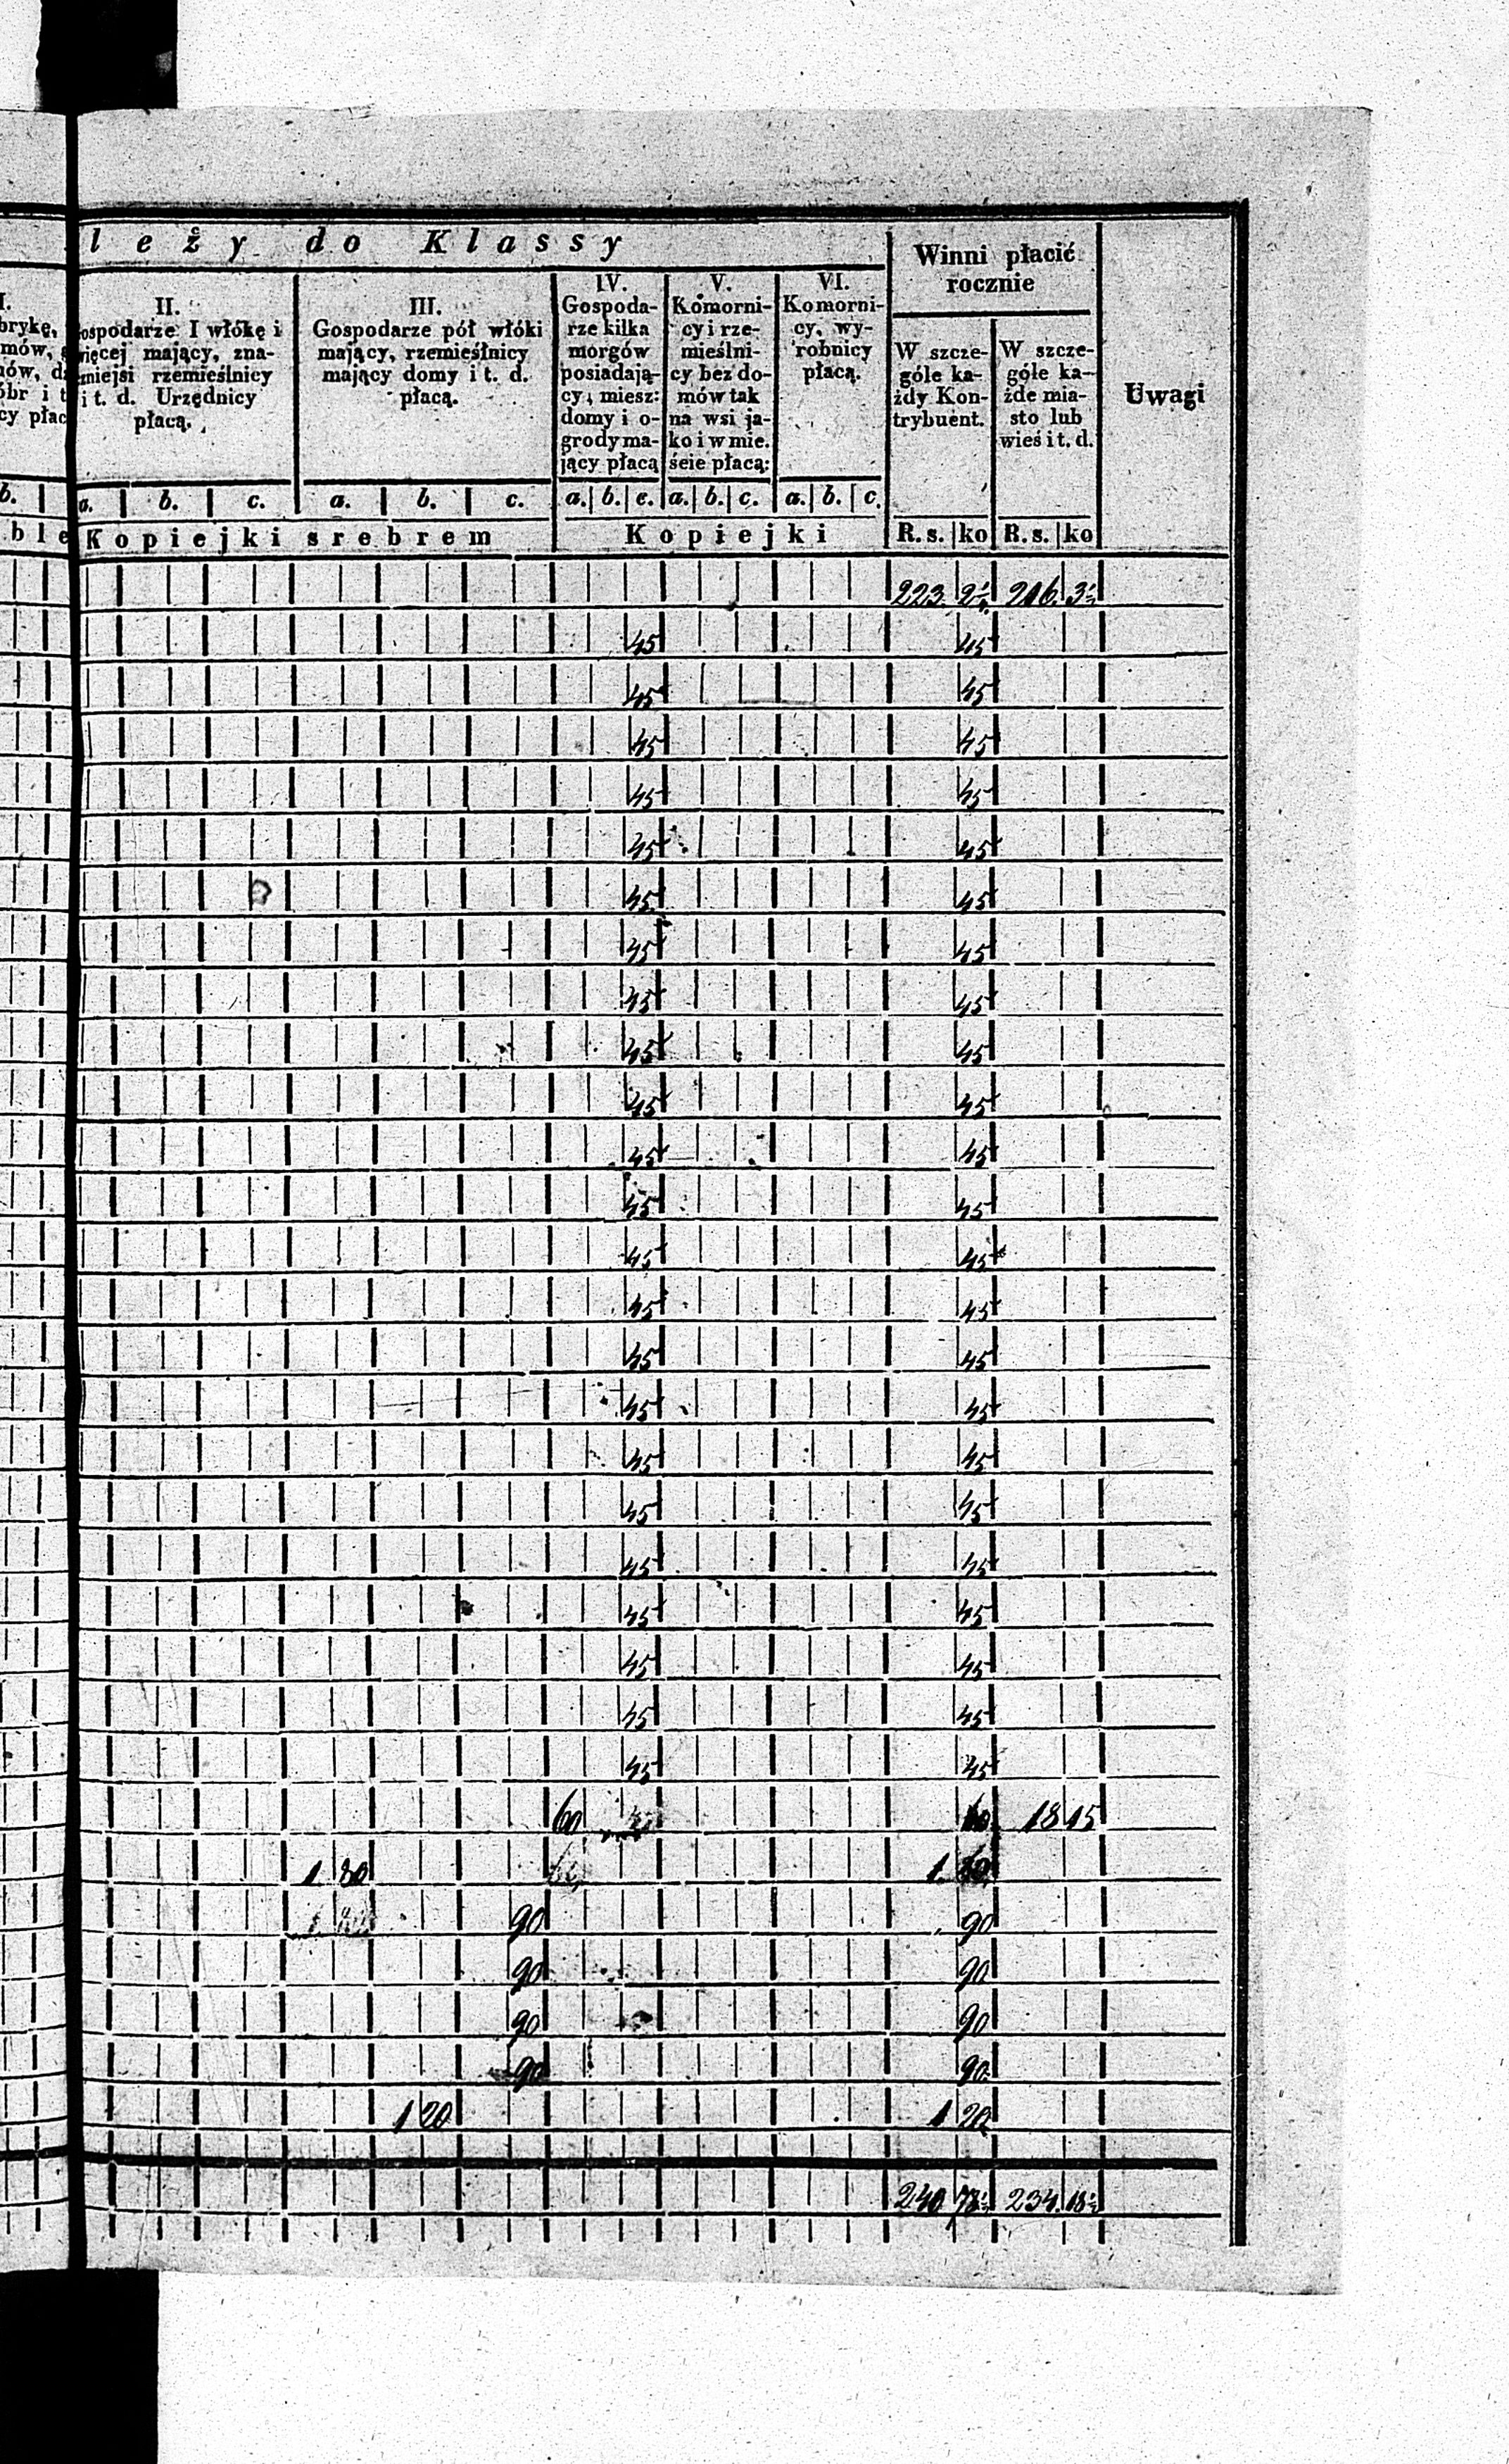 leży do Klassy
Winni płacić
rocznie
Uwagi
I.
brykę,
mów,
nów,
óbr i t
cy płac
II.
ospodarze I włókę i
więcej mający, zna-
mniejsi rzemieślnicy
i t. d. Urzędnicy
płacą.
III.
Gospodarze pół włóki
mający, rzemieślnicy
mający domy i t. d.
płacą.
IV.
Gospoda-
rze kilka
morgów
posiadają-
cy, miesz:
domy i o-
grody ma-
jący płacą
V.
Komorni-
cy i rze-
mieślni-
cy bez do-
mów tak
na wsi ja-
ko i w mie.
ście płacą:
VI.
Komorni-
cy, wy-
robnicy
płacą.
W szcze-
góle ka-
żdy Kon-
trybuent.
W szcze-
góle ka-
żde mia-
sto lub
wieś i t. d.
b. a. b. c. a. b. c. a. b. c. a. b. c. a. b. c.
ble Kopiejki srebrem Kopiejki R. s. ko R. s. ko
223. 2½ 216. 3½
45 45
45 45
45 45
45 45
45 45
45 45
45 45
45 45
45 45
45 45
45 45
45 45
45 45
45 45
45 45
45 45
45 45
45 45
45 45
45 45
45 45
45 45
45 45
60 60 18 15
1 80 1. 80
90 90
90 90
90 90
90 90
1 20 1 20
240 78½ 234. 18½